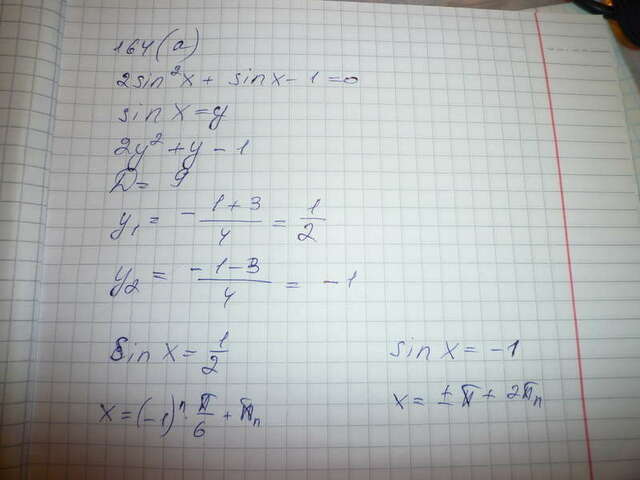 164(а)
2sin²x + sinx - 1 = 0
sin x = y
2y² + y - 1
D = 9
y₁ = - 1 + 3 / 4 = 1/2
y₂ = - 1 - 3 / 4 = - 1
Sin x = 1/2    sin x = - 1
x = (-1)ⁿ · π/6 + πn    x = ± π + 2πn